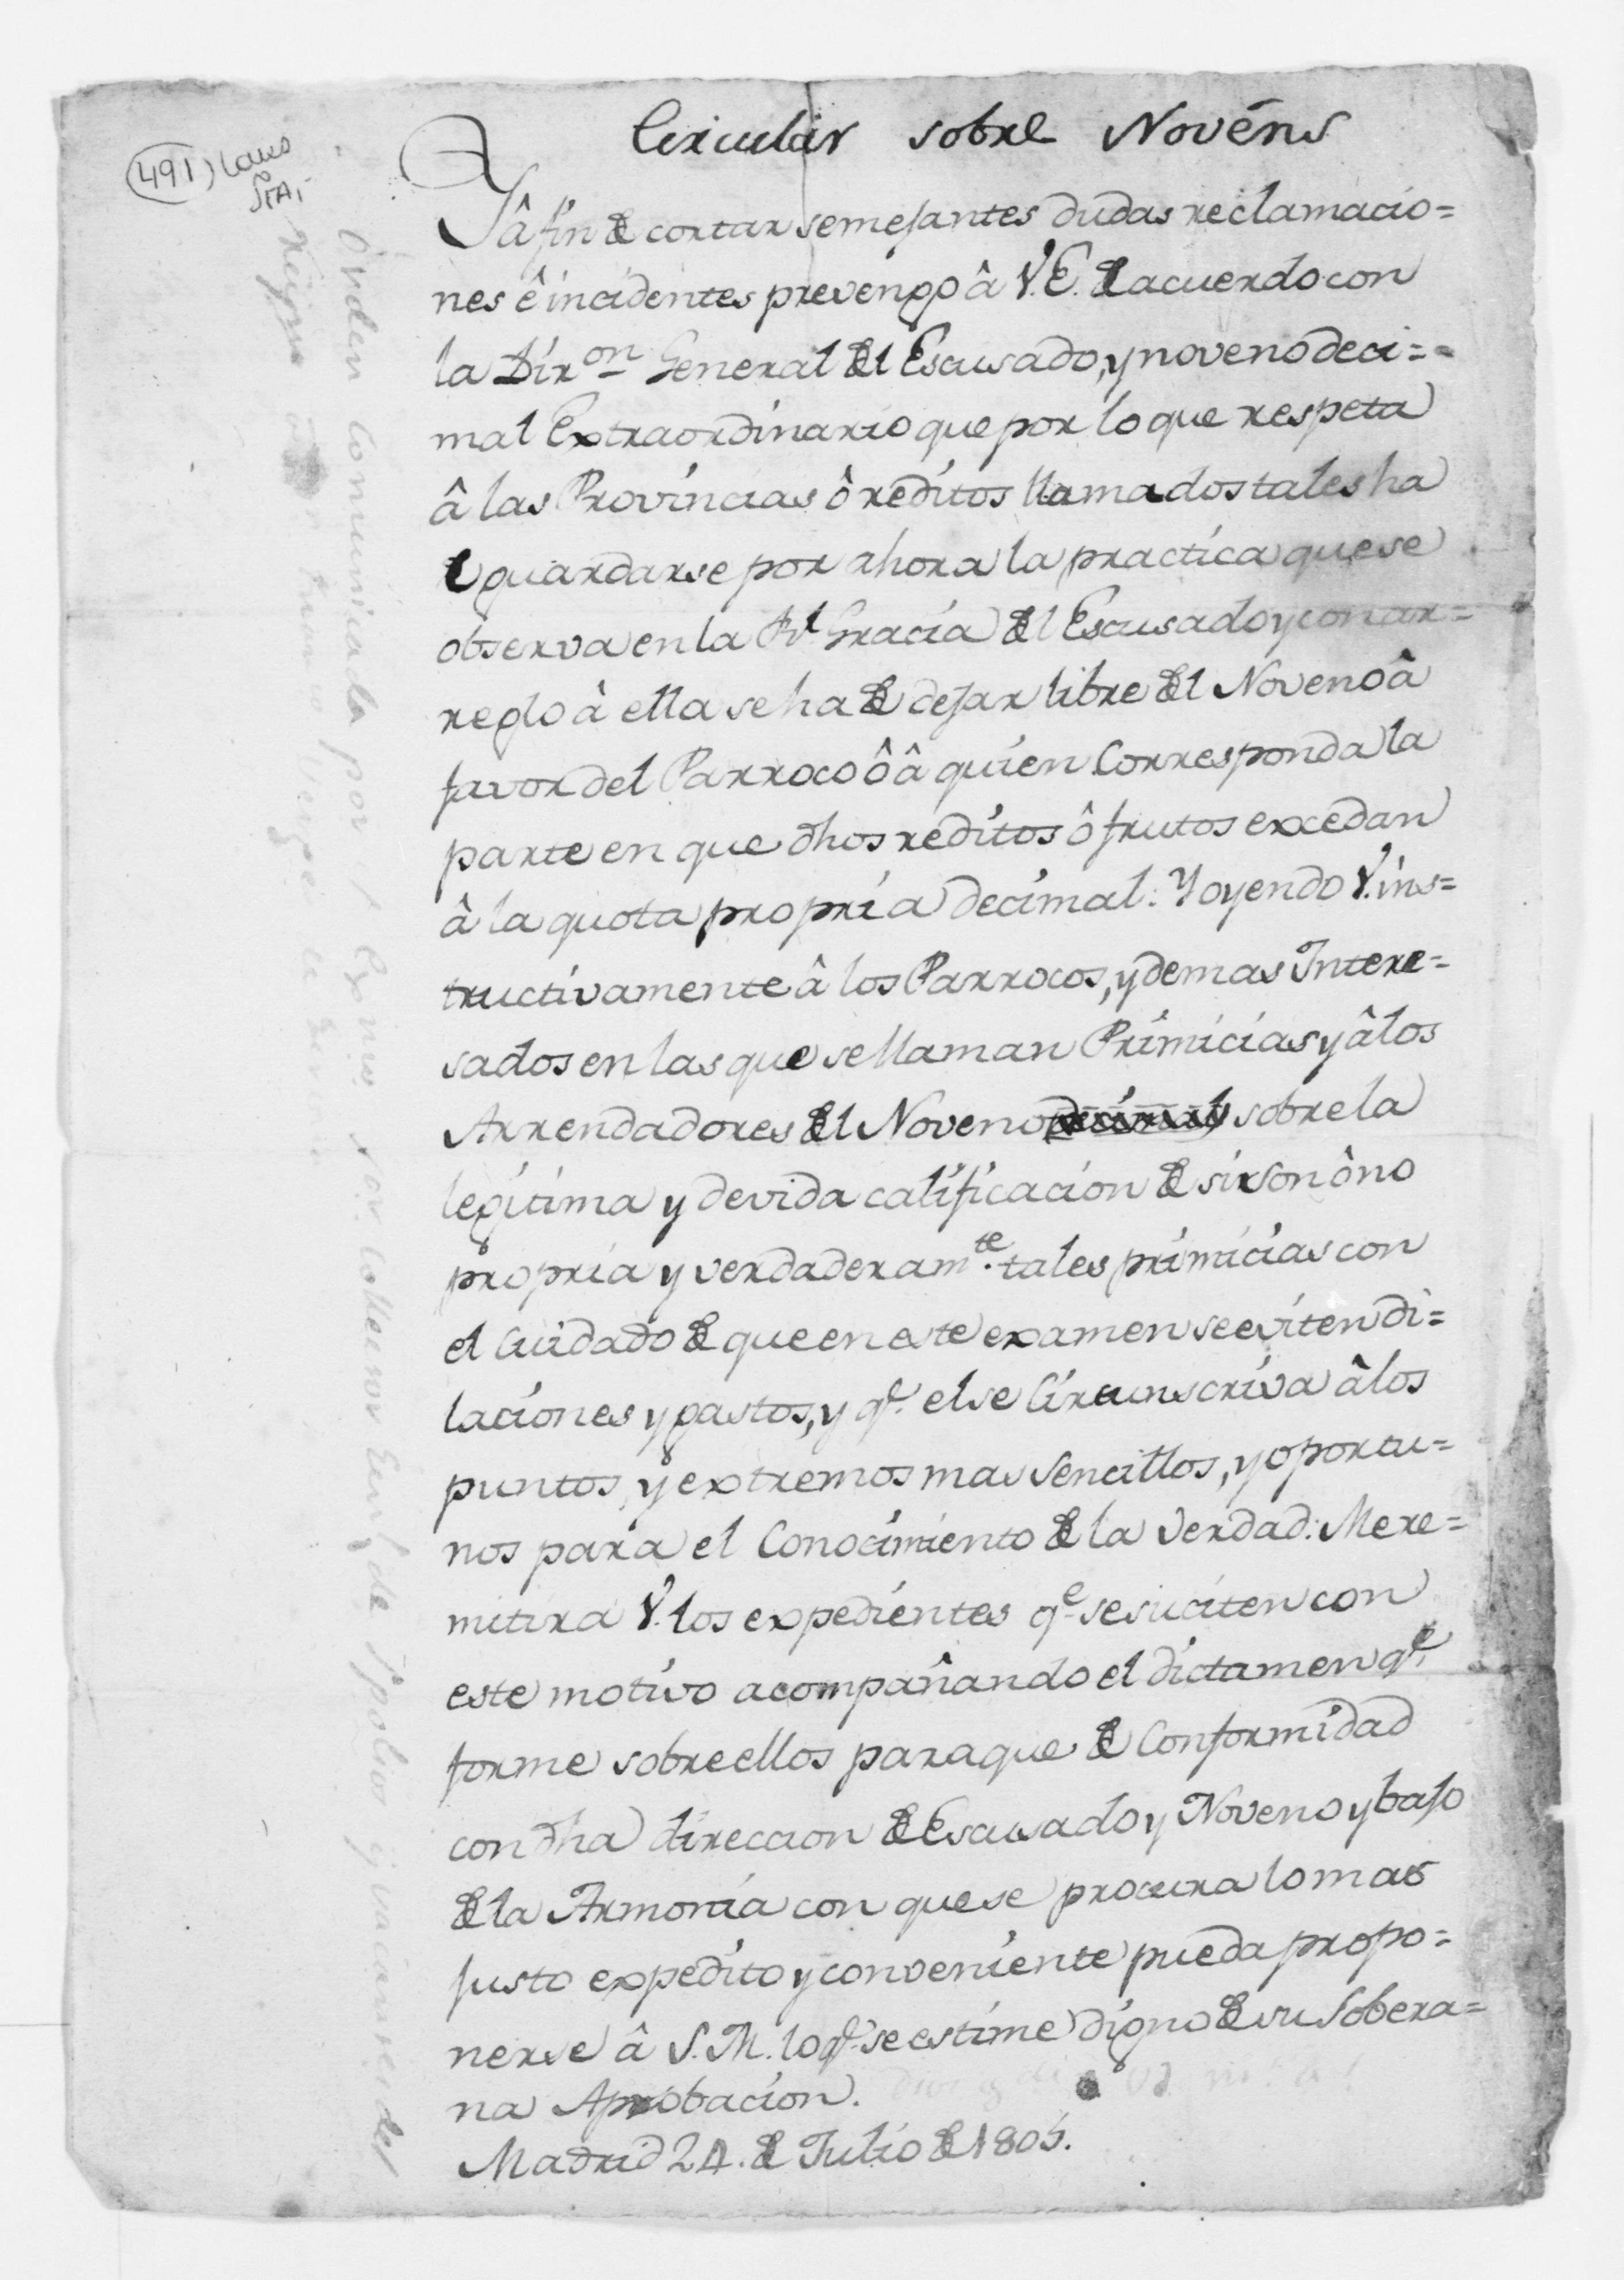 Circular sobre Novéns
491) Laus
STA,
Y â fin de cortar semejantes dudas reclamacio=
nes ê incidentes prevengo â V.E. de acuerdo con
la Dir.on General del Escusado, y noveno deci==
mal Extraordinario que por lo que respeta
â las Provincias ô reditos llamados tales ha
e guardarse por ahora la practica que se
observa en la Rl. Gracia del Escusado y con ar=
reglo â ella se ha de dejar libre del Noveno â
favor del Parroco ô â quien Corresponda la
parte en que dhos reditos ô frutos excedan
â la quota propria decimal: Y oyendo V. ins=
tructivamente â los Parrocos, y demas Intere=
sados en las que se llaman Primicias y â los
Arrendadores del Noveno decimal sobre la
legitima y devida calificacion de si son ô no
propria y verdaderam.te tales primicias con
el Cuidado de que en este examen se eviten di=
laciones y gastos, y q.e el se Circunscriva â los
puntos, y extremos mas Sencillos, y oportu=
nos para el Conocimiento de la Verdad: Me re=
mitira V. los expedientes q.e se suciten con
este motivo acompañando el dictamen q.e
forme sobre ellos para que de Conformidad
con dha direccion de Escusado y Noveno y bajo
de la Armonia con que se procura lo mas
justo expedito y conveniente pueda propo=
nerse â S. M. lo q.e se estime digno de su Sobera=
na Aprobacion.
Madrid 24. de Julio de 1805.
Orden Comunicada por el Exmo Sor Collector Genl de Spolios y vacantes del
Reyno